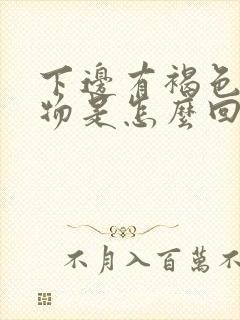 下邊有褐色
物是怎麼回
不月入百萬不